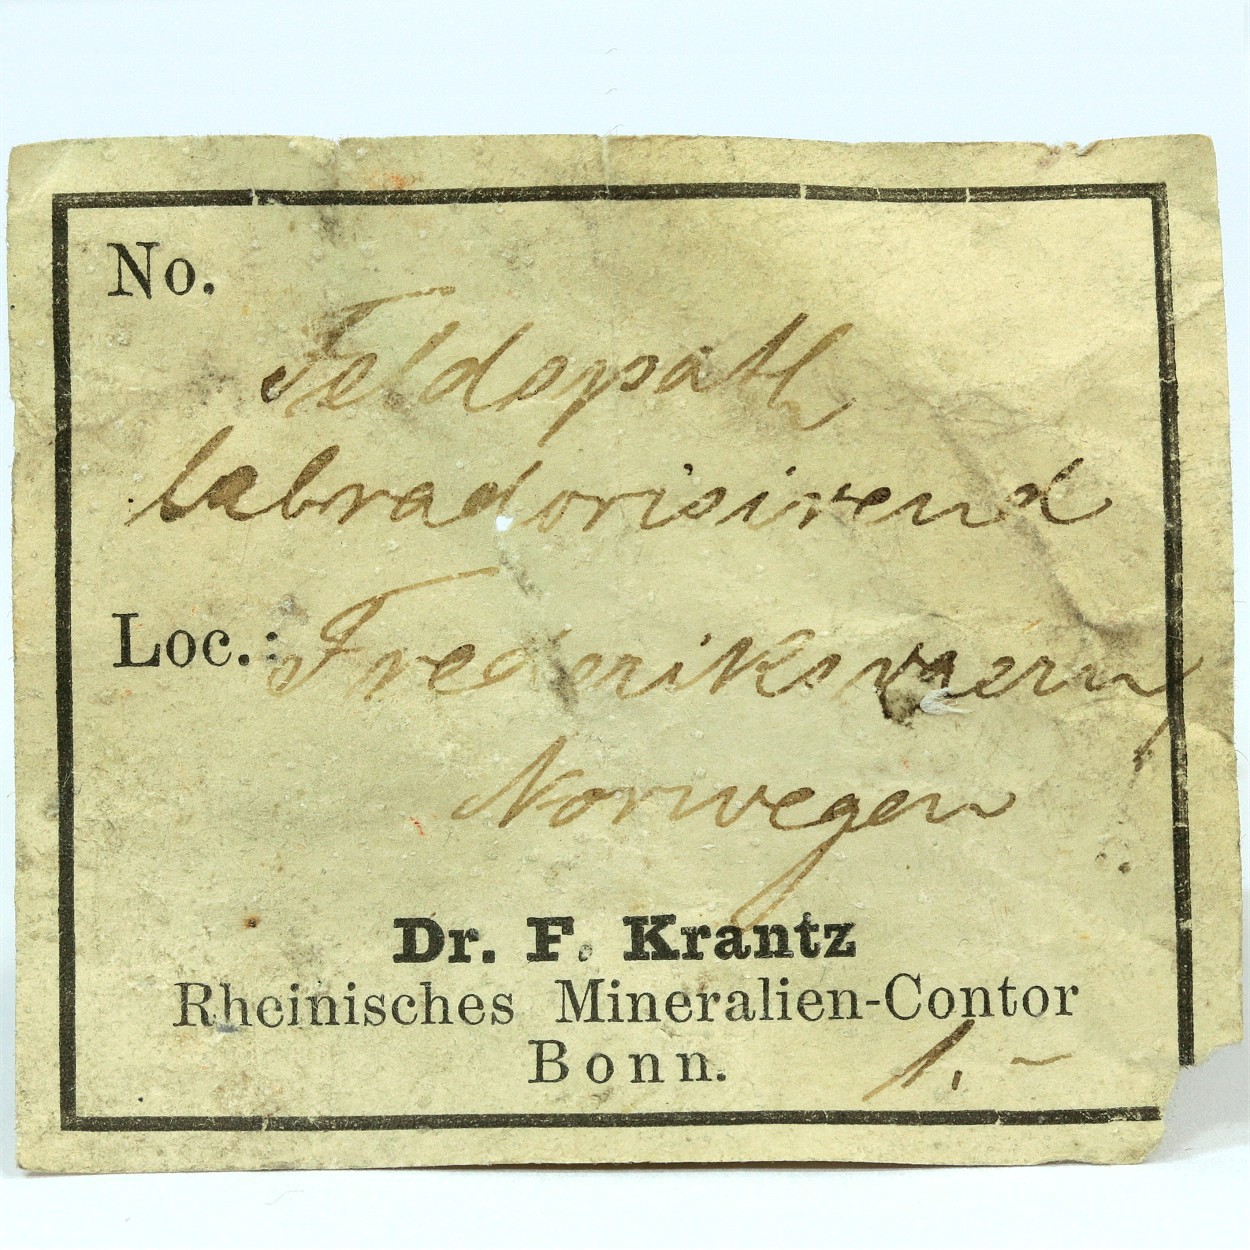 No.
Feldspath
labradorisirend
Loc.: Frederiksværn,
Norwegen
Dr. F. Krantz
Rheinisches Mineralien-Contor
Bonn.
1.-